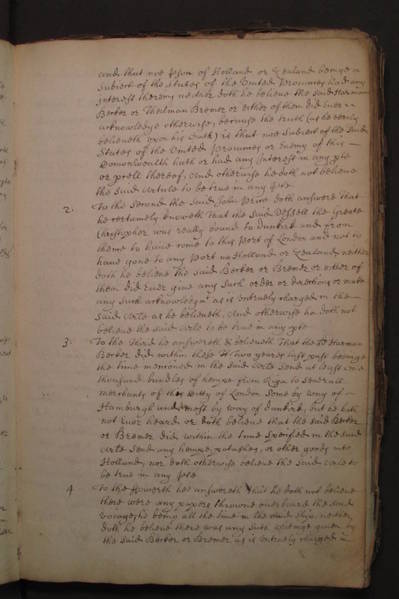 and that noe person of Holland or Zealand being a
Subiect of the States of the United Provinces had any
interest therein, neither doth he beleeve the said Harman
Berber or Theilman Bremer or either of them did ever
acknowledge otherwise, because the truth (as he verily
beleeveth upon his Oath) is that noe Subiect of the said
States of the United Provinces or enemy of this
Comonwealth hath or had any Interest in any pte
or prcell thereof, And otherwise he doth not beleeve
the said Article to be true in any pte
2. To the Second the said John Prine doth answere That
he certainely knoweth that the said Vessell the Greate
Christopher was really bound to Dunkirk and from
thence to have come to this Port of London and not to
have gone to any Port in Holland or Zealand, neither
doth he beleeve the said Berber or Bremer or either of
them did ever give any such order or direction or make
any such acknowledgmt as is untruely charged in the
said Arle as he beleeveth, And otherwise hee doth not
beleeve the said Arle to be true in any pte
3. To the Third he answereth & beleeveth That the sd Harman
Berber did within these two yeares last past beeinge
the time mentioned in the said Arle send at least one
thousand bundles of hempe from Riga to severall
merchants of this Citty of London Some by way of
Hamburgh and most by way of Dunkirk, but he hath
not ever heard or doth beleeve that the said Berber
or Bremer did within the time specified in the said
Arle Send any hempe, potashes, or other goods into
Holland, nor doth otherwise beleeve the said Arle to
be true in any pte
4. To the ffowerth hee answereth That he doth not beleeve
there were any papers throwne over board the said
voyage he being all the time in the said ship, neither
doth he beleeve there was any such given by
the said Berber or Bremer as is untruely charged in